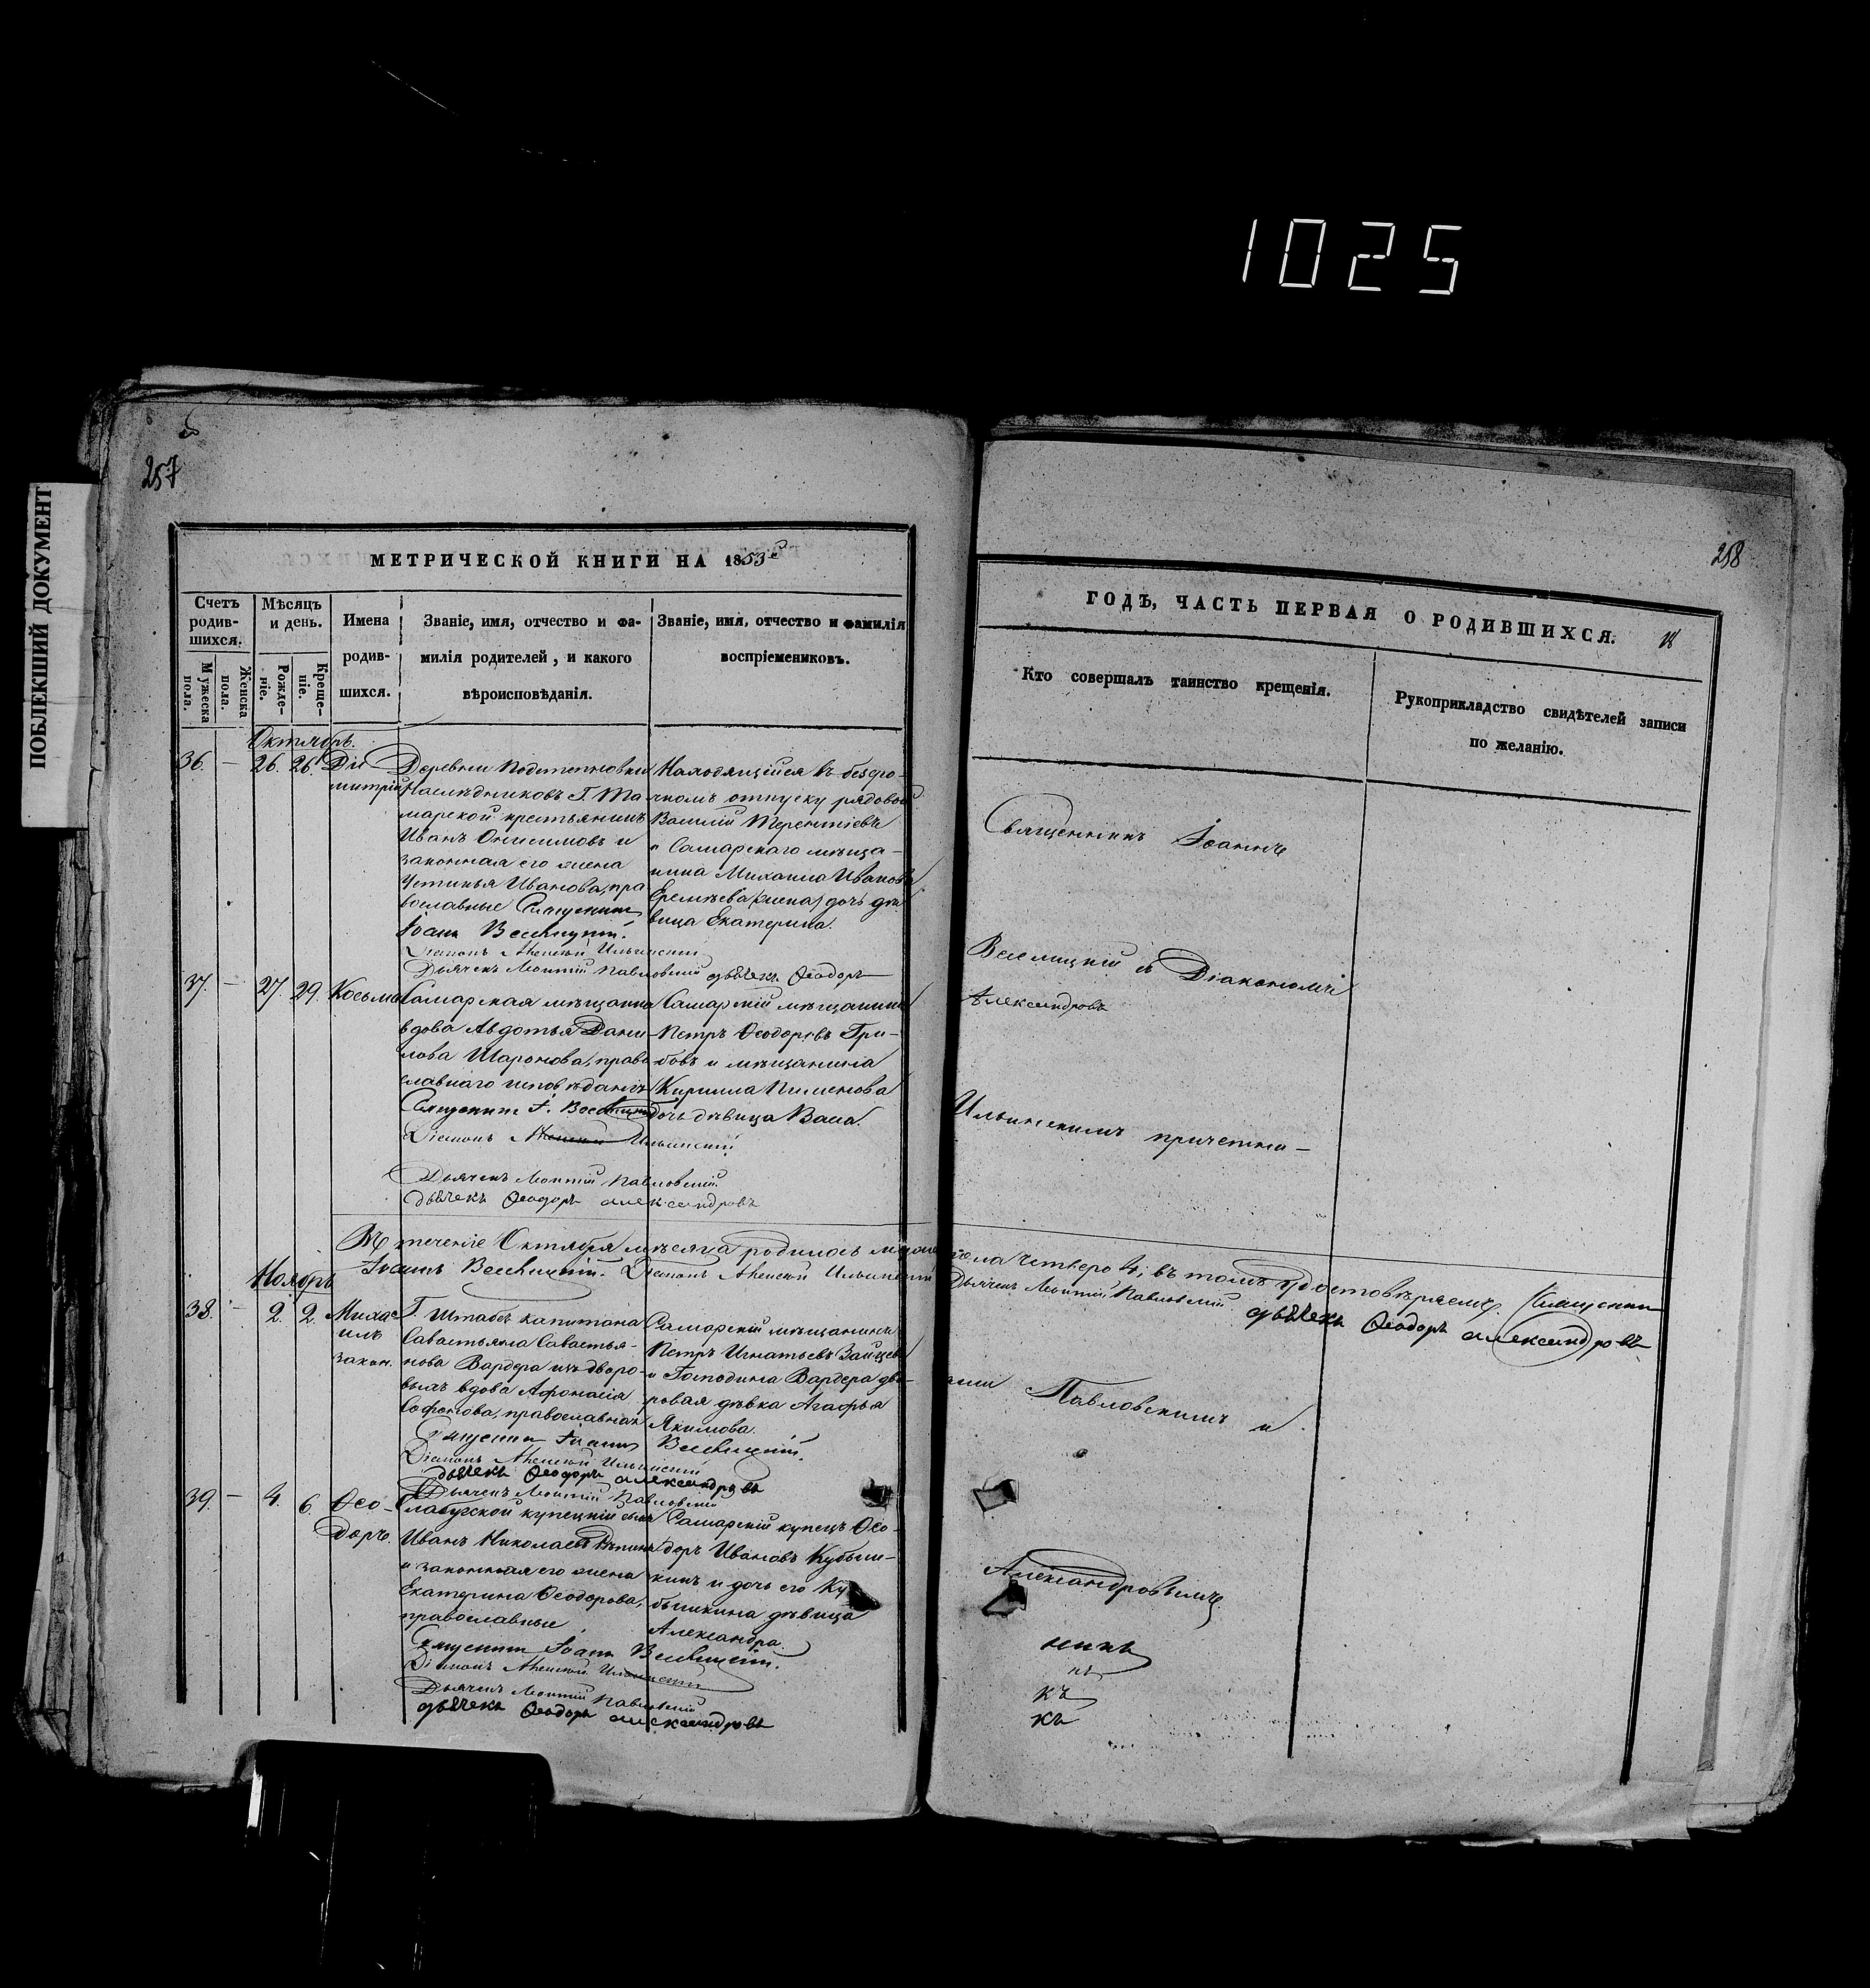 1025
ПОБЛЕКШИЙ ДОКУМЕНТ
257
МЕТРИЧЕСКОЙ КНИГИ НА 1853й
Счетъ родив-шихся.
Мужеска пола.
Женска пола.
Мѣсяцъ и день.
Рожде-ніе.
Креще-ніе.
Имена родив-шихся.
Званіе, имя, отчество и фа-
милія родителей, и какого
вѣроисповѣданія.
Званіе, имя, отчество и фамилія
воспріемениковъ.
Октябрь.
36. — 26. 26. Ди-
митрій
Деревни Подстепновки
Наслѣдниковъ Г. Та-
марской крестьянинъ
Иванъ Онисимовъ и
законная его жена
Устинья Иванова, пра-
вославные Священникъ
Іоаннъ Веселицкій.
Діаконъ Алексѣй Ильинскій
Дьячекъ Леонтій Павловскій дьячекъ Ѳеодоръ
Находящійся въ безсро-
чномъ отпуску рядовой
Василій Терентіевъ
и Самарскаго мѣща-
нина Михаила Иванова
Еремѣева дочь дѣ-
вица Екатерина.
37. — 27. 29. Косьма
Самарская мѣщанка
вдова Авдотья Дани-
лова Шаронова, право-
славнаго исповѣданія
Священникъ І. Веселицкій
Діаконъ Алексѣй Ильинскій.
Дьячекъ Леонтій Павловскій.
дьячекъ Ѳеодоръ александровъ
Самарскій мѣщанинъ
Петръ Ѳеодоровъ Гри-
бовъ и мѣщанина
Кирилла Пименова
дочь дѣвица Васса.
Въ теченіе Октября мѣсяца родилось мужеска пола четверо 4; въ томъ удостовѣряемъ. Священникъ
Іоаннъ Веселицкій. Діаконъ Алексѣй Ильинскій Дьячекъ Леонтій Павловскій дьячекъ Ѳеодоръ александровъ
Ноябрь
38. — 2. 2. Миха-
илъ
закон.
Г. Штабсъ капитана
Савастьяна Савастья-
нова Вардера изъ дворо-
выхъ вдова Афонасія
Софонова, православная
Священникъ Іоаннъ Веселицкій.
Діаконъ Алексѣй Ильинскій
дьячекъ Ѳеодоръ александровъ
Дьячекъ Леонтій Павловскій
Самарскій мѣщанинъ
Петръ Игнатьевъ Зайцевъ
и Господина Вардера дво-
ровая дѣвка Агафья
Якимова.
39. — 4. 6. Ѳео-
доръ.
Елабужской купецкій сынъ
Иванъ Николаевъ
и законная его жена
Екатерина Ѳеодорова,
православные
Священникъ Іоаннъ Веселицкій.
Діаконъ Алексѣй Ильинскій
Дьячекъ Леонтій Павловскій
дьячекъ Ѳеодоръ александровъ
Самарскій купецъ Ѳео-
доръ Ивановъ Кубыш-
кинъ и дочь его Ку-
бышкина дѣвица
Александра.
258
ГОДЪ, ЧАСТЬ ПЕРВАЯ О РОДИВШИХСЯ.
18
Кто совершалъ таинство крещенія.
Рукоприкладство свидѣтелей записи
по желанію.
Священникъ Іоаннъ
Веселицкій съ Діакономъ
Александровъ
Ильинскимъ причетни-
ками Павловскимъ и
Александровымъ.
никъ
нъ
къ
къ